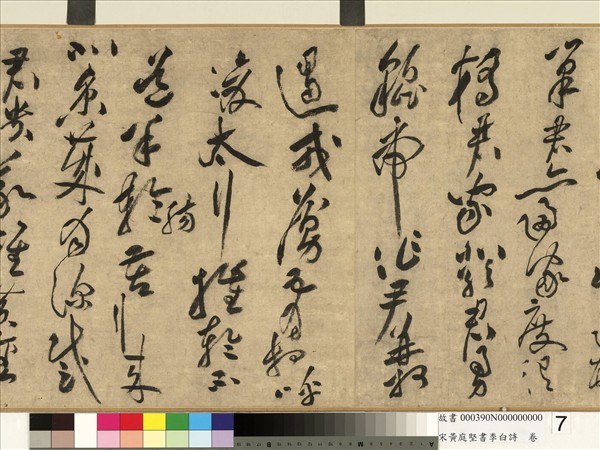 巢君亦歸家度渭
橋君家嚴君勇
貔虎作尹并州
遏戎虜五月相呼
渡太行摧輪不
道羊輪腸苦行來
北京歲月深感
君貴義輕黃金
故書 000390N000000000
宋黃庭堅書李白詩 卷
7